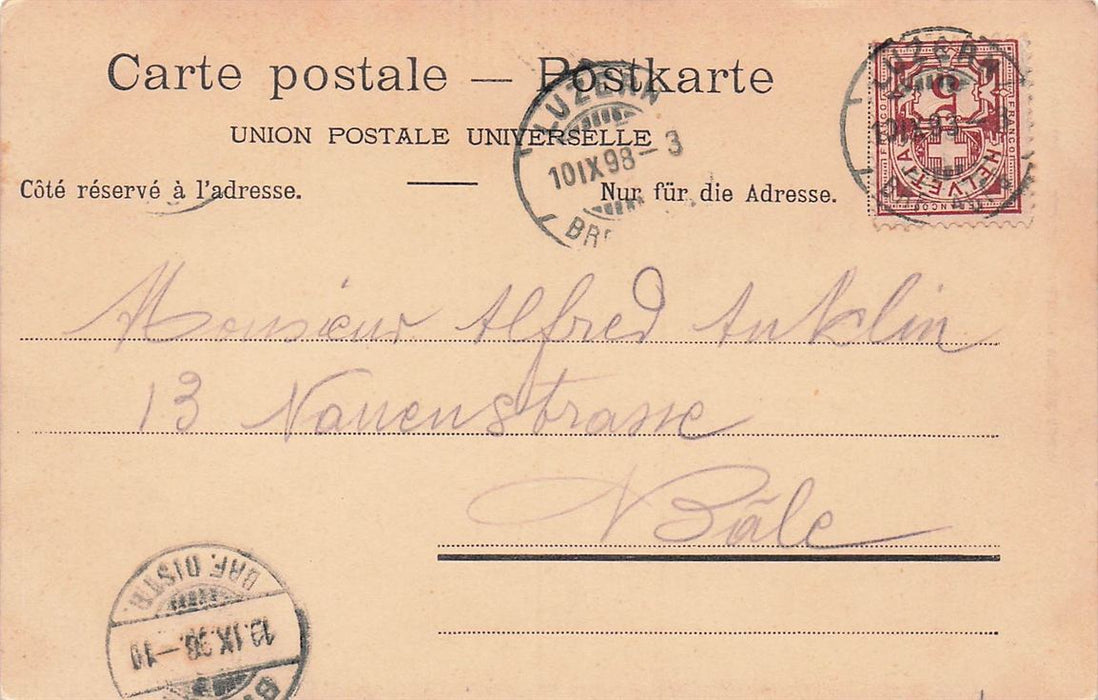 Carte postale — Postkarte
UNION POSTALE UNIVERSELLE
Côté réservé à l'adresse.
Nur für die Adresse.
LUZERN
10 IX 98 – 3
LUZERN
5
FRANCO
HELVETIA
Monsieur Alfred Anklin
13 Nauenstrasse
Bâle
BRF. DISTR.
IX.98.–10